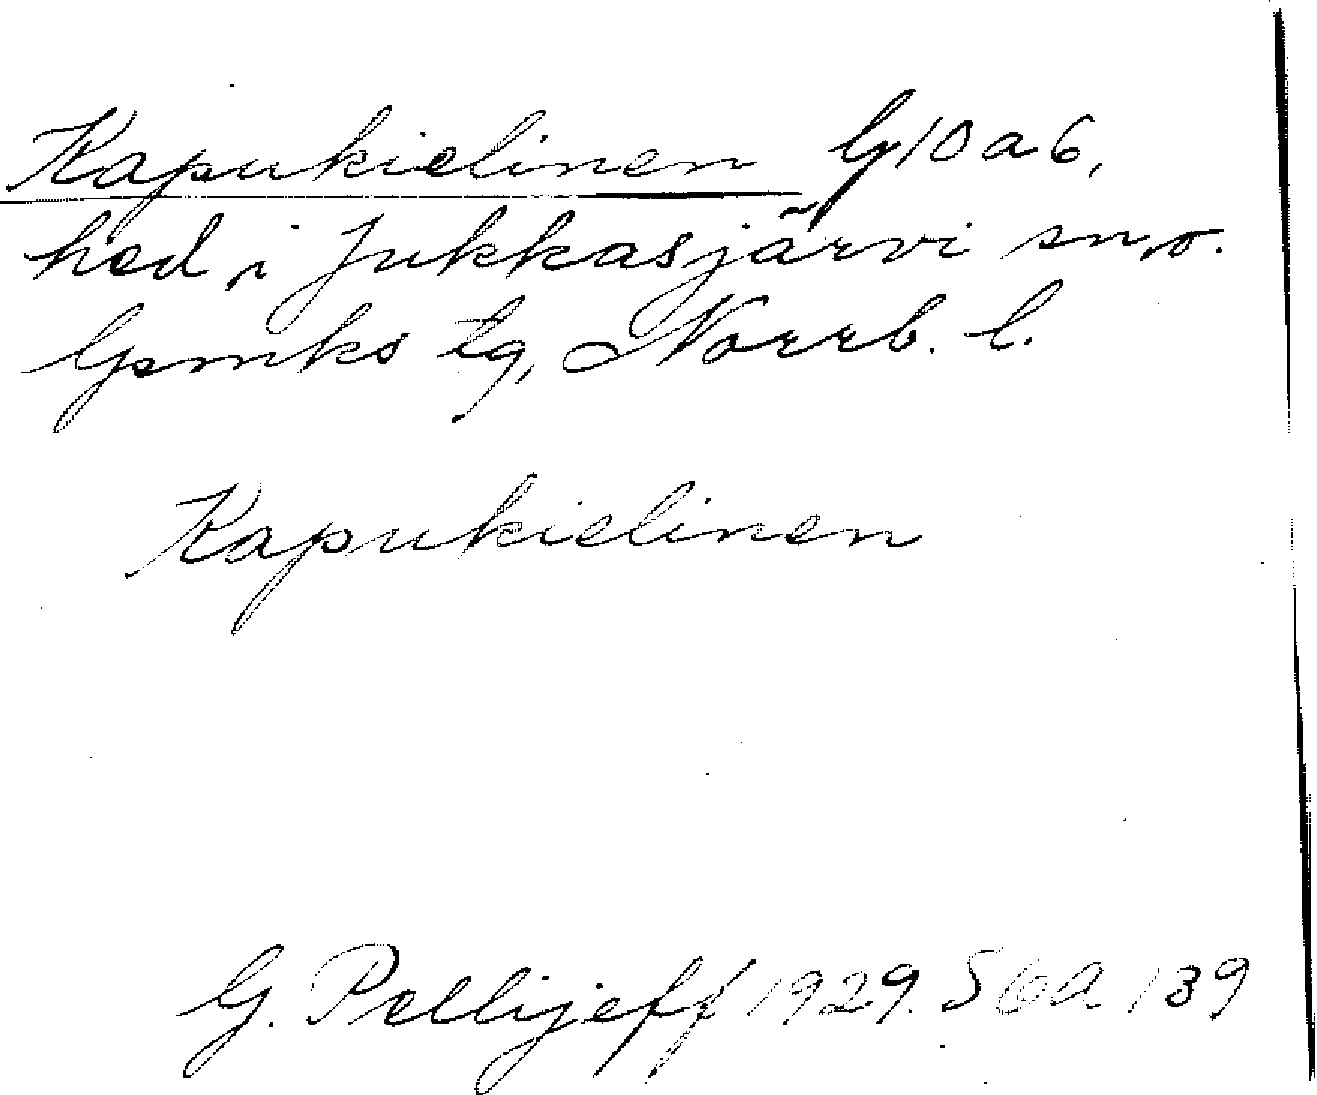 Kapukielinen G10a6,
hed i Jukkasjärvi sn o.
Gsmks tg, Norrb. l.
Kapukielinen
G. Pellijeff 1929. S 139